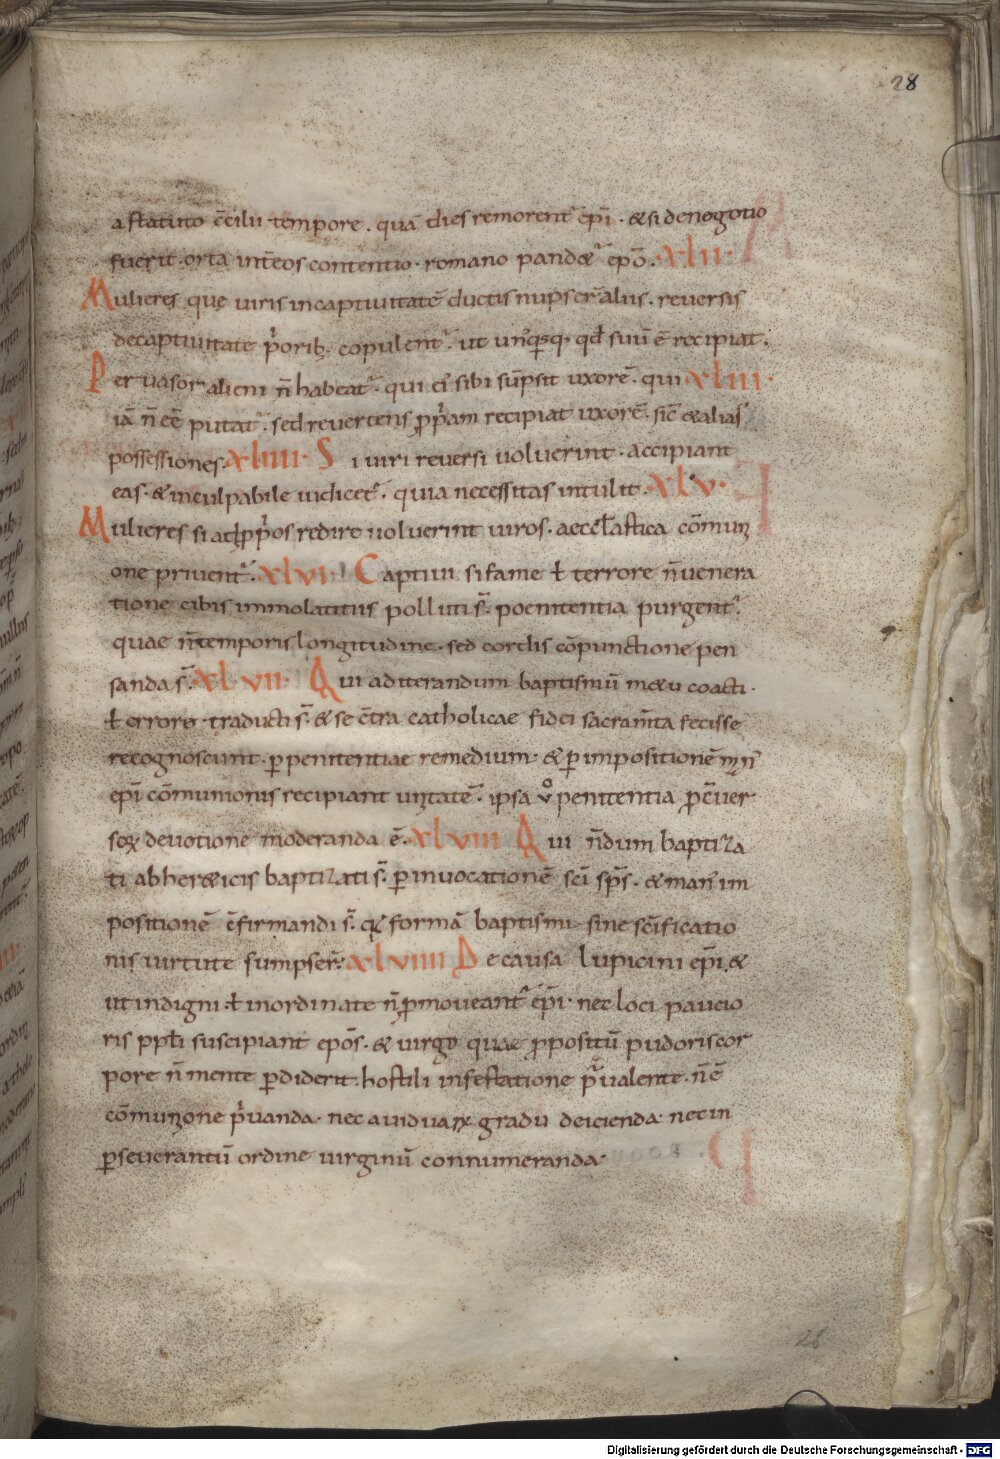 28
a statuto c̄cilii tempore. quā dies remorent᷑ ep̄i. & si de negotio
fuerit orta int̄ eos contentio. romano pandet᷑ ep̄o. XLII.
Mulieres quę uiris in captiuitatē ductis nupser̄ aliis. reuersis
de captiuitate p̓orib; copulent᷑. ut un᷒qͥsq; qđ suū ē recipiat.
Peruasor alieni n̄ habeat᷑. qui ei᷒ sibi sūpsit uxorē. qui XLIII.
iā n̄ eē putat᷑. sed reuertens ꝓp̓am recipiat uxorē. sic̄ & alias
possessiones. XLIIII. Si uiri reuersi uoluerint. accipiant
eas. & inculpabile iudicet᷑. quia necessitas intulit. XLV.
Mulieres si ad ꝓp̓os redire noluerint uiros. aeccƚastica cōmuni
one priuent᷑. XLVI. Captiui si fame ƚ terrore n̄ uenera
tione cibis immolatitiis polluti s̄. poenitentia purgent᷑.
quae n̄ temporis longitudine. sed cordis cōpunctione pen
sanda s̄. XLVII. Qui ad iterandum baptismū metu coacti.
ƚ errore traducti s̄. & se c̄tra catholicae fidei sacram̄ta fecisse
recognoscunt. ꝑ penitentiae remedium. & ꝑ impositionē man᷒
ep̄i cōmunionis recipiant unitatē. ipsa v̊ penitentia ꝓ c̄uer
soꝝ deuotione moderanda ē. XLVIII Qui n̄dum baptiza
ti ab hereticis baptizati s̄. ꝑ inuocationē sc̄i sp̄s. & man᷒ im
positionē c̄firmandi s̄. quia formā baptismi. sine sc̄ificatio
nis uirtute sumpser̄. XLVIIII De causa lupicini ep̄i. &
ut indigni. ƚ inordinate n̄ ꝓmoueant᷑ ep̄i. nec loci paucio
ris ppƚi suscipiant ep̄os. & uirgo quae ꝓpositū pudoris cor
pore n̄ mente ꝑdiderit. hostili infestatione p̄ualente. n̄ ē
cōmunione p̓uanda. nec a uiduaꝝ gradu deicienda. nec in
ꝑseuerantiū ordine uirginū connumeranda.
28
Digitalisierung gefördert durch die Deutsche Forschungsgemeinschaft - DFG